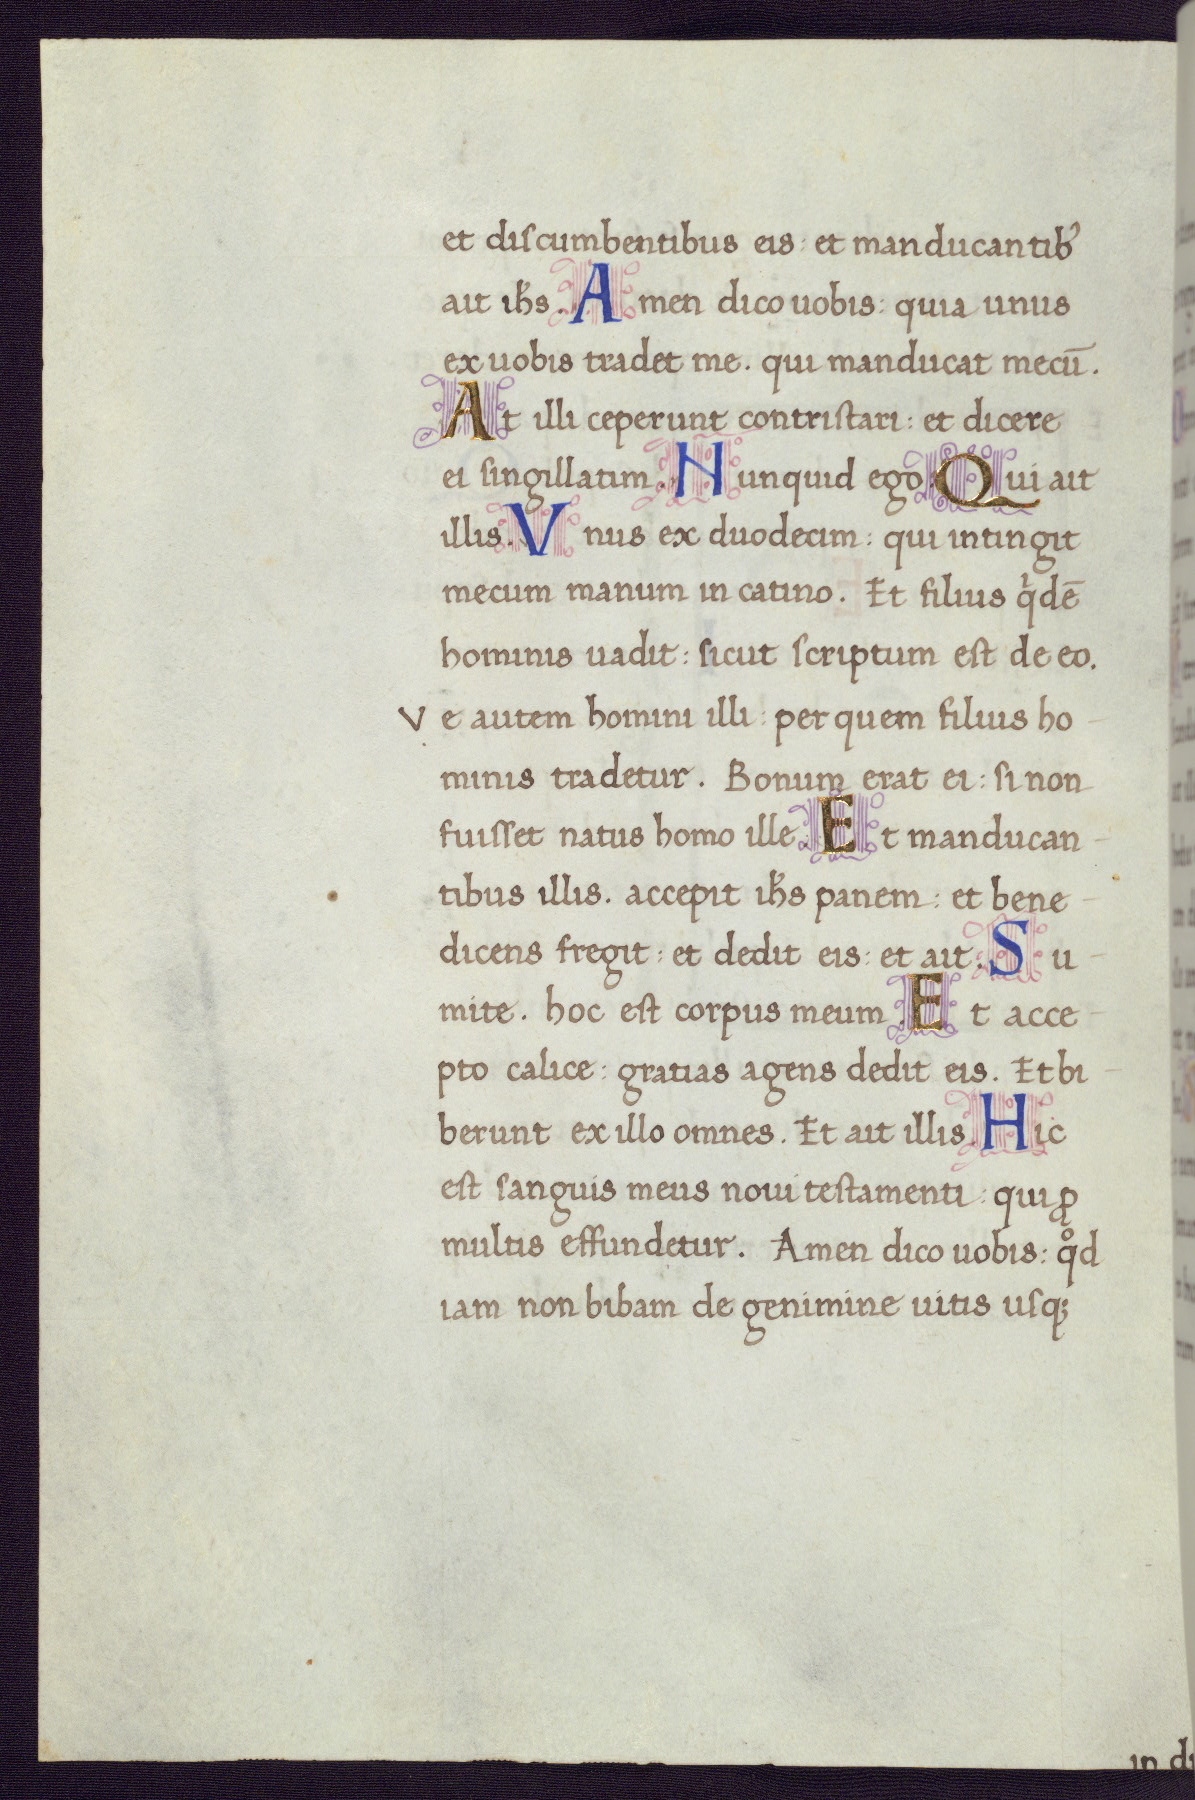 et diſcumbentibus eis : et manducantibꝰ
ait ihs̄. Amen dico uobis : quia unus
ex uobis tradet me. qui manducat mecū.
At illi ceperunt contriſtari : et dicere
ei ſingillatim. Nunquid ego. Qui ait
illis. Vnus ex duodecim : qui intingit
mecum manum in catino. Et filius qͥdē
hominis uadit : ſicut ſcriptum eſt de eo.
Ve autem homini illi : per quem filius ho-
minis tradetur. Bonum erat ei : ſi non
fuiſſet natus homo ille. Et manducan-
tibus illis. accepit ihs̄ panem : et bene-
dicens fregit : et dedit eis : et ait : Su-
mite. hoc eſt corpus meum. Et acce-
pto calice : gratias agens dedit eis. Et bi-
berunt ex illo omnes. Et ait illis. Hic
eſt ſanguis meus noui teſtamenti : qui ꝓ
multis effundetur. Amen dico uobis : qͦd
iam non bibam de genimine uitis uſqꝫ
in di